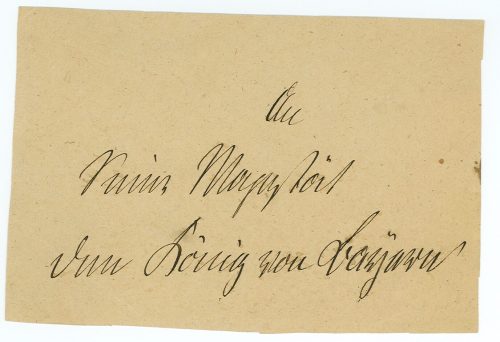 An
Seine Majestät
den König von Bayern